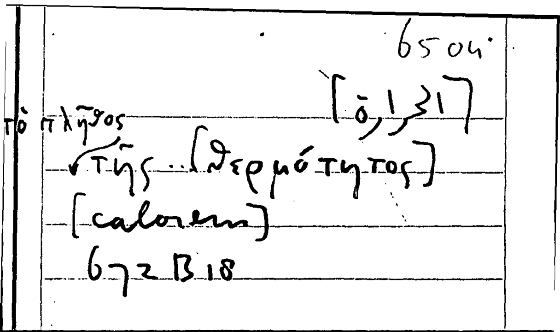 6504
[ὁ, 1, 31]
τὸ πλῆθος
τῆς .. [θερμότητος]
[calorem]
672 B 18